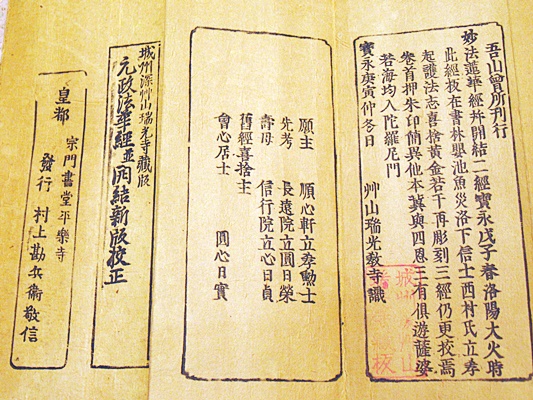 吾山曾所刊行
妙法蓮華經并開結二經寶永戊子春洛陽大火時
此經板在書林嬰池魚災洛下信士西村氏立季
起護法志喜捨黃金若干再彫刻三經仍更校焉
卷首押朱印簡異他本冀與四恩三有俱遊薩婆
若海均入陀羅尼門
寶永庚寅仲冬日　艸山瑞光教寺識
願主　順心軒立季勲士
先考　長遠院立圓日榮
壽母　信行院立心日貞
舊經喜捨主
會心居士　圓心日實
城州深艸山瑞光寺藏版
元政法華經並開結新版校正
皇都　宗門書堂平樂寺
發行　村上勘兵衞敬信